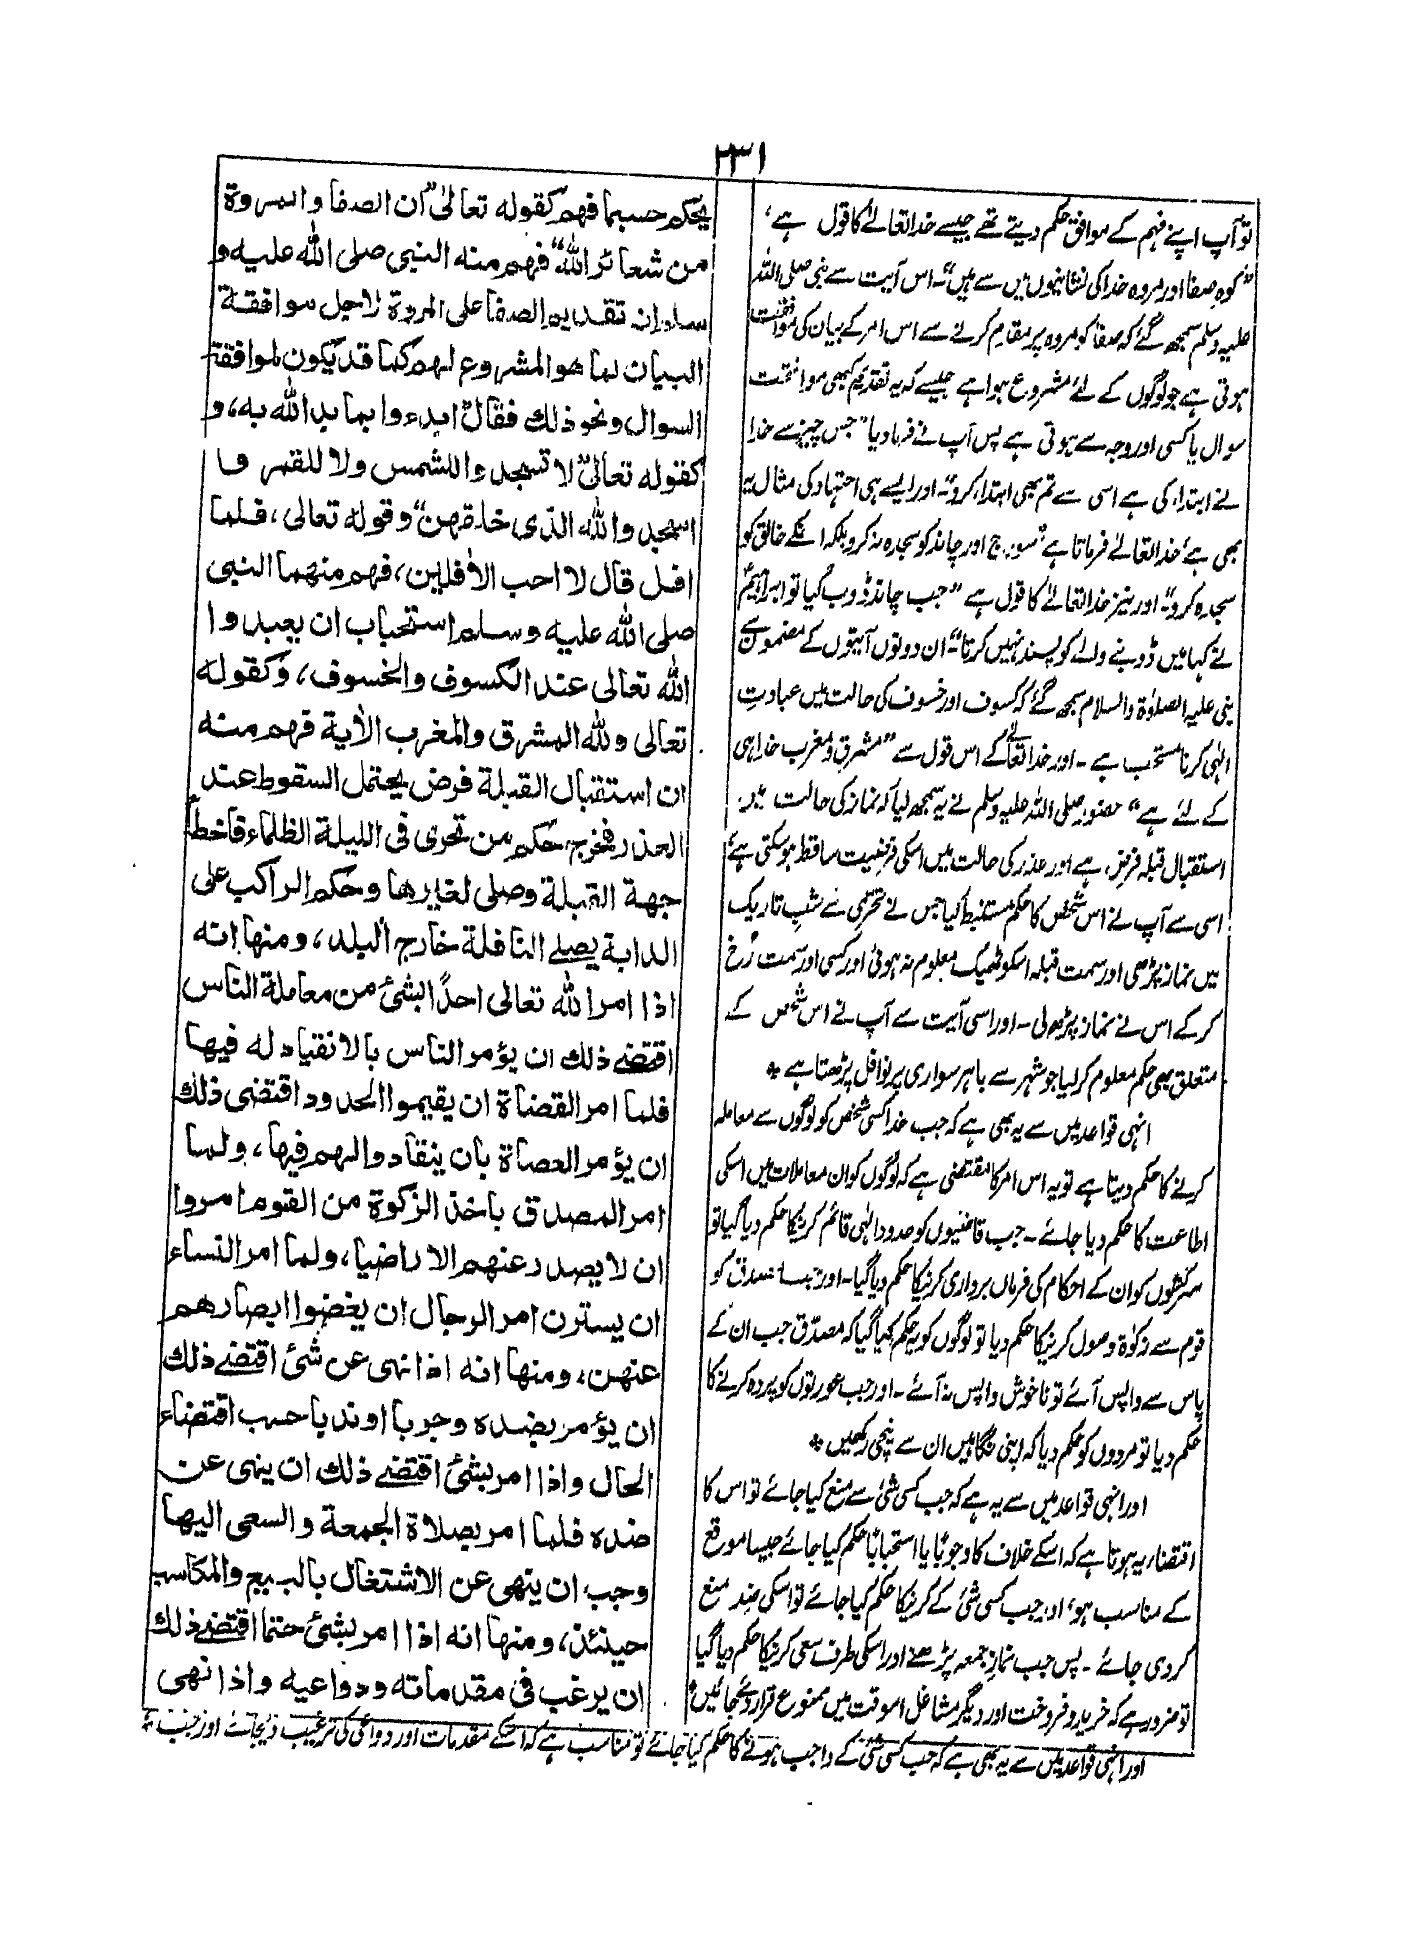 ۲۳۱
تو آپ اپنے فہم کے موافق حکم دیتے تھے جیسے خدا تعالےٰ کا قول ہے،
"کوہِ صفا اور مروہ خدا کی نشانیوں میں سے ہیں"۔ اس آیت سے نبی صلی اللہ
علیہ وسلم سمجھ گئے کہ صفا کو مروہ پر مقدم کرنے سے اس امر کے بیان کی موافقت
ہوتی ہے جو لوگوں کے لئے مشروع ہوا ہے جیسے کہ یہ تقدیم کبھی موافقت
سوال یا کسی اور وجہ سے ہوتی ہے پس آپ نے فرما دیا "جس چیز سے خدا
نے ابتداء کی ہے اسی سے تم بھی ابتداء کرو"۔ اور ایسے ہی اجتہاد کی مثال یہ
بھی ہے خدا تعالےٰ فرماتا ہے "سورج اور چاند کو سجدہ نہ کرو بلکہ انکے خالق کو
سجدہ کرو"۔ اور نیز خدا تعالےٰ کا قول ہے "جب چاند ڈوب گیا تو ابراہیمؑ
نے کہا میں ڈوبنے والے کو پسند نہیں کرتا"۔ ان دونوں آیتوں کے مضمون سے
نبی علیہ الصلوٰۃ والسلام سمجھ گئے کہ کسوف اور خسوف کی حالت میں عبادتِ
الٰہی کرنا مستحب ہے۔ اور خدا تعالےٰ کے اس قول سے "مشرق و مغرب خدا ہی
کے لئے ہے" حضور صلی اللہ علیہ وسلم نے یہ سمجھ لیا کہ نماز کی حالت میں
استقبال قبلہ فرض ہے اور عذر کی حالت میں اسکی فرضیت ساقط ہو سکتی ہے
اسی سے آپ نے اس شخص کا حکم مستنبط کیا جس نے تحری سے شبِ تاریک
میں نماز پڑھی اور سمت قبلہ اسکو ٹھیک معلوم نہ ہوئی اور کسی اور سمت رُخ
کر کے اس نے نماز پڑھ لی۔ اور اسی آیت سے آپ نے اس شخص کے
متعلق بھی حکم معلوم کر لیا جو شہر سے باہر سواری پر نوافل پڑھتا ہے *
انہی قواعد میں سے یہ بھی ہے کہ جب خدا کسی شخص کو لوگوں سے معاملہ
کرنے کا حکم دیتا ہے تو یہ اس امر کا مقتضی ہے کہ لوگوں کو ان معاملات میں اسکی
اطاعت کا حکم دیا جائے۔ جب قاضیوں کو حدود الٰہی قائم کرنیکا حکم دیا گیا تو
سرکشوں کو ان کے احکام کی فرماں برداری کرنیکا حکم دیا گیا۔ اور جب مصدق کو
قوم سے زکوٰۃ وصول کرنیکا حکم دیا تو لوگوں کو یہ حکم کیا گیا کہ مصدّق جب ان کے
پاس سے واپس آئے تو ناخوش واپس نہ آئے۔ اور جب عورتوں کو پردہ کرنے کا
حکم دیا تو مردوں کو حکم دیا کہ اپنی نگاہیں ان سے نیچی رکھیں *
اور انہی قواعد میں سے یہ ہے کہ جب کسی شئ سے منع کیا جائے تو اس کا
اقتضاء یہ ہوتا ہے کہ اسکے خلاف کا وجوباً یا استحباباً حکم کیا جائے جیسا موقع
کے مناسب ہو، اور جب کسی شئ کے کرنیکا حکم کیا جائے تو اسکی ضد منع
کر دی جائے۔ پس جب نمازِ جمعہ پڑھنے اور اسکی طرف سعی کرنیکا حکم دیا گیا
تو ضرور ہے کہ خرید و فروخت اور دیگر مشاغل اسوقت میں ممنوع قرار دئے جائیں *
اور انہی قواعد میں سے یہ بھی ہے کہ جب کسی شئ کے واجب ہونے کا حکم کیا جائے تو مناسب ہے کہ اسکے مقدمات اور دواعی کی ترغیب دیجائے اور جب
یحکم حسبما فهم کقوله تعالیٰ "ان الصفا والمروة
من شعائر الله" فهم منه النبی صلی الله علیه و
سلم ان تقدیم الصفا علی المروة لاجل موافقة
البیان لما هو المشروع لهم کما قد یکون لموافقة
السوال ونحو ذلك فقال "ابدءوا بما بدا الله به، و
کقوله تعالیٰ "لا تسجدوا للشمس ولا للقمر وا
اسجدوا لله الذی خلقهن" وقوله تعالی، فلما
افل قال لا احب الآفلین، فهم منهما النبی
صلی الله علیه وسلم استحباب ان یعبدوا
الله تعالی عند الکسوف والخسوف، وکقوله
تعالی ولله المشرق والمغرب الآیة فهم منه
ان استقبال القبلة فرض یحتمل السقوط عند
العذر فخرج حکم من تحری فی اللیلة الظلماء فاخطأ
جهة القبلة وصلی لغیرها وحکم الراکب علی
الدابة یصلے النافلة خارج البلد، ومنها انه
اذا امر الله تعالی احدًا بشئ من معاملة الناس
اقتضے ذلك ان یؤمر الناس بالانقیاد له فیها
فلما امر القضاة ان یقیموا الحدود اقتضی ذلك
ان یؤمر العصاة بان ینقادوا لهم فیها، ولما
امر المصدق باخذ الزکوة من القوم امروا
ان لا یصدر عنهم الا راضیا، ولما امر النساء
ان یسترن امر الرجال ان یغضوا ابصارهم
عنهن، ومنها انه اذا نهی عن شئ اقتضے ذلك
ان یؤمر بضده وجوبا او ندبا حسب اقتضاء
الحال واذا امر بشئ اقتضے ذلك ان ینهی عن
ضده فلما امر بصلاة الجمعة والسعی الیها
وجب ان ینهی عن الاشتغال بالبیع والمکاسب
حینئذ، ومنها انه اذا امر بشئ حتما اقتضے ذلك
ان یرغب فی مقدماته ودواعیه واذا نهی